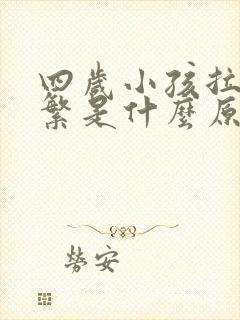 四歲小孩拉
繁是什麼原
勞安